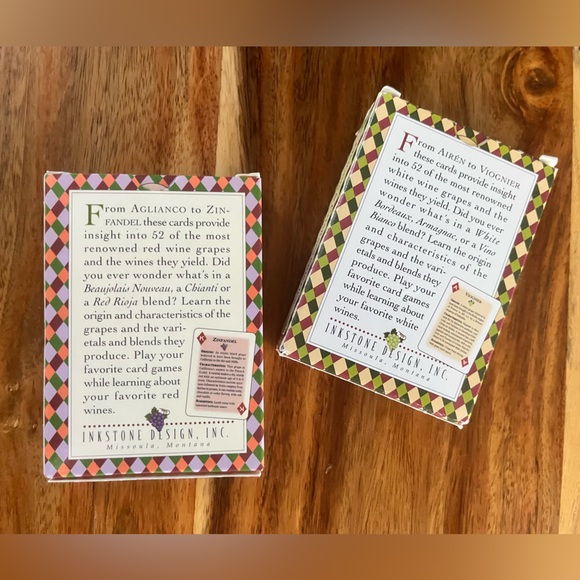 From Aglianco to Zin-
fandel these cards provide
insight into 52 of the most
renowned red wine grapes
and the wines they yield. Did
you ever wonder what's in a
Beaujolais Nouveau, a Chianti or
a Red Rioja blend? Learn the
origin and characteristics of the
grapes and the vari-
etals and blends they
produce. Play your
favorite card games
while learning about
your favorite red
wines.
ZINFANDEL
INKSTONE DESIGN, INC.
Missoula, Montana
From Airén to Viognier
these cards provide insight
into 52 of the most renowned
white wine grapes and the
wines they yield. Did you ever
wonder what's in a White
Bordeaux, Armagnac, or a Vino
Bianco blend? Learn the origin
and characteristics of the
grapes and the vari-
etals and blends they
produce. Play your
favorite card games
while learning about
your favorite white
wines.
VIOGNIER
INKSTONE DESIGN, INC.
Missoula, Montana